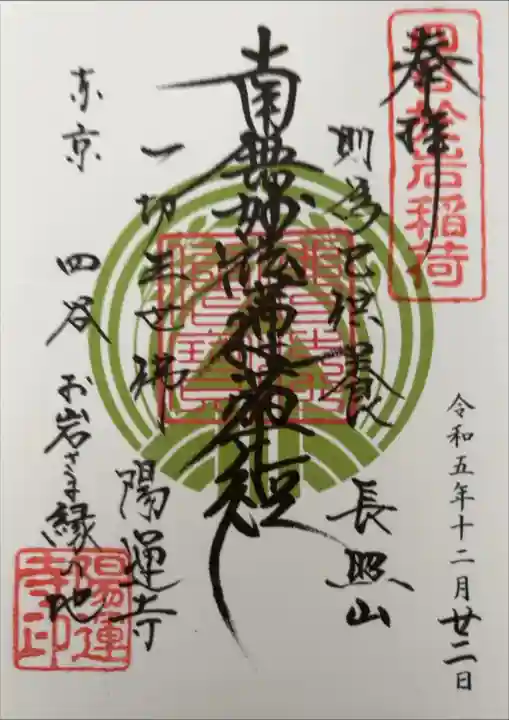 奉拝
四谷於岩稲荷
令和五年十二月廿二日
則為已供養
長照山
南無妙法蓮華経
一切三世佛
陽運寺
東京 四谷 お岩さま縁の地
陽運寺印